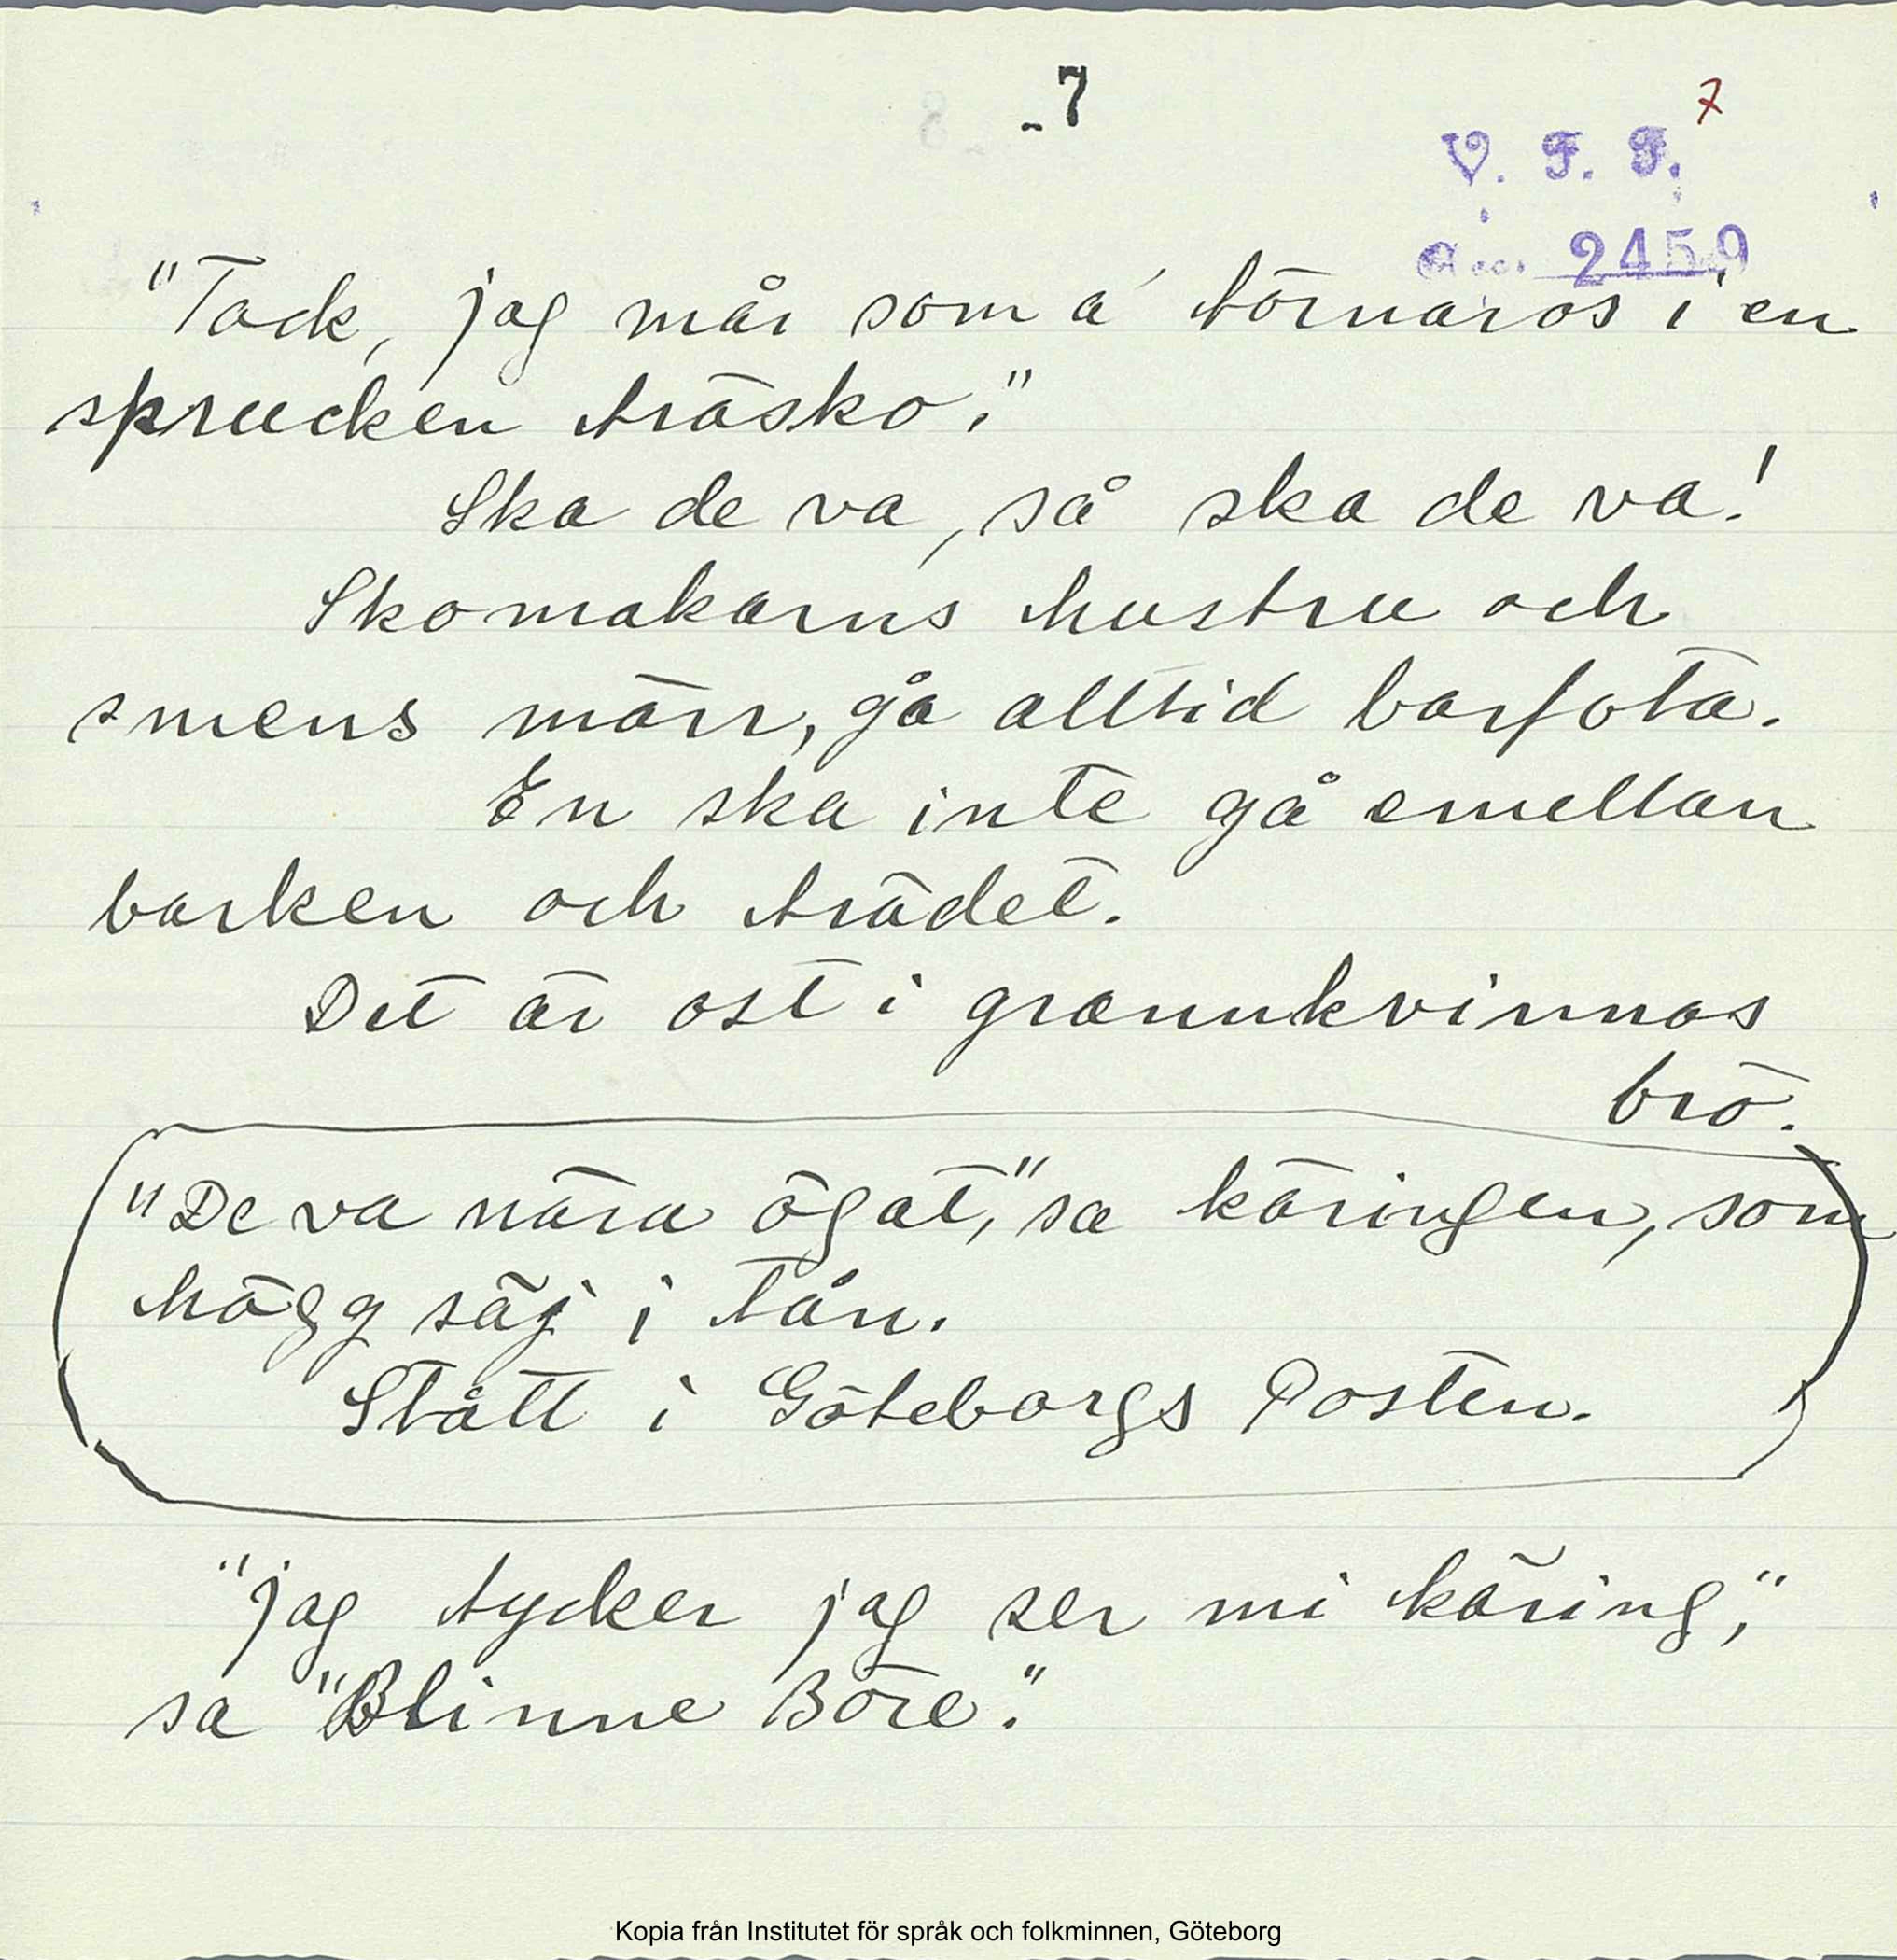 7
7
V. F. F.
Acc. 2459
"Tack, jag mår som a' törnaros i en
sprucken träsko."
Ska de va, så ska de va!
Skomakarns hustru och
smens märr, gå alltid barfota.
En ska inte gå emellan
barken och trädet.
Det är ost i grannkvinnas
brö.
"De va nära ögat," sa käringen, som
högg säj i tån.
Stått i Göteborgs Posten.
"jag tycker jag ser mi käring,"
sa "Blinne Böre."
Kopia från Institutet för språk och folkminnen, Göteborg